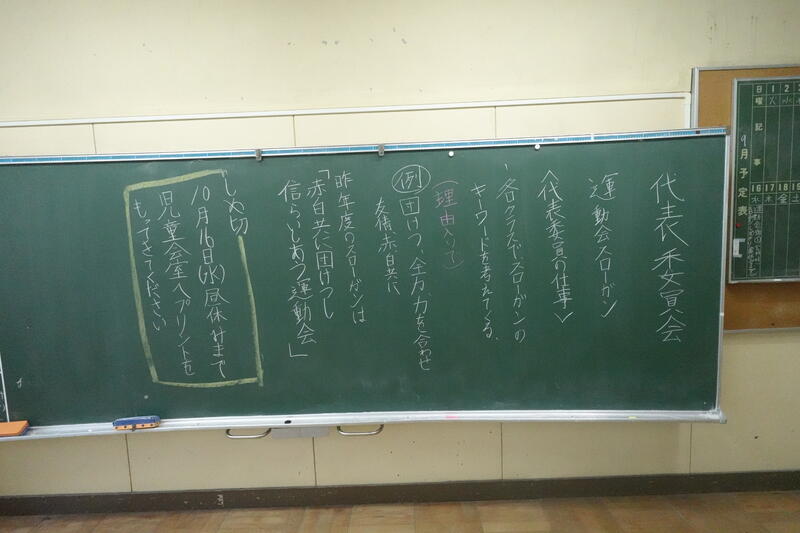 代表委員会
運動会スローガン
〈代表委員の仕事〉
・各クラスでスローガンの
キーワードを考えてくる。
(理由入りで)
例 団けつ、全力、力を合わせ
友情、赤白共に
昨年度のスローガンは
「赤白共に団けつし
信らいしあう運動会」
しめ切
10月16日(水)昼休みまで
児童会室へプリントを
もってきてください
日 1 2 3
曜 火 水
記事
9月予定表
16 17 18 19
水 木 金 土